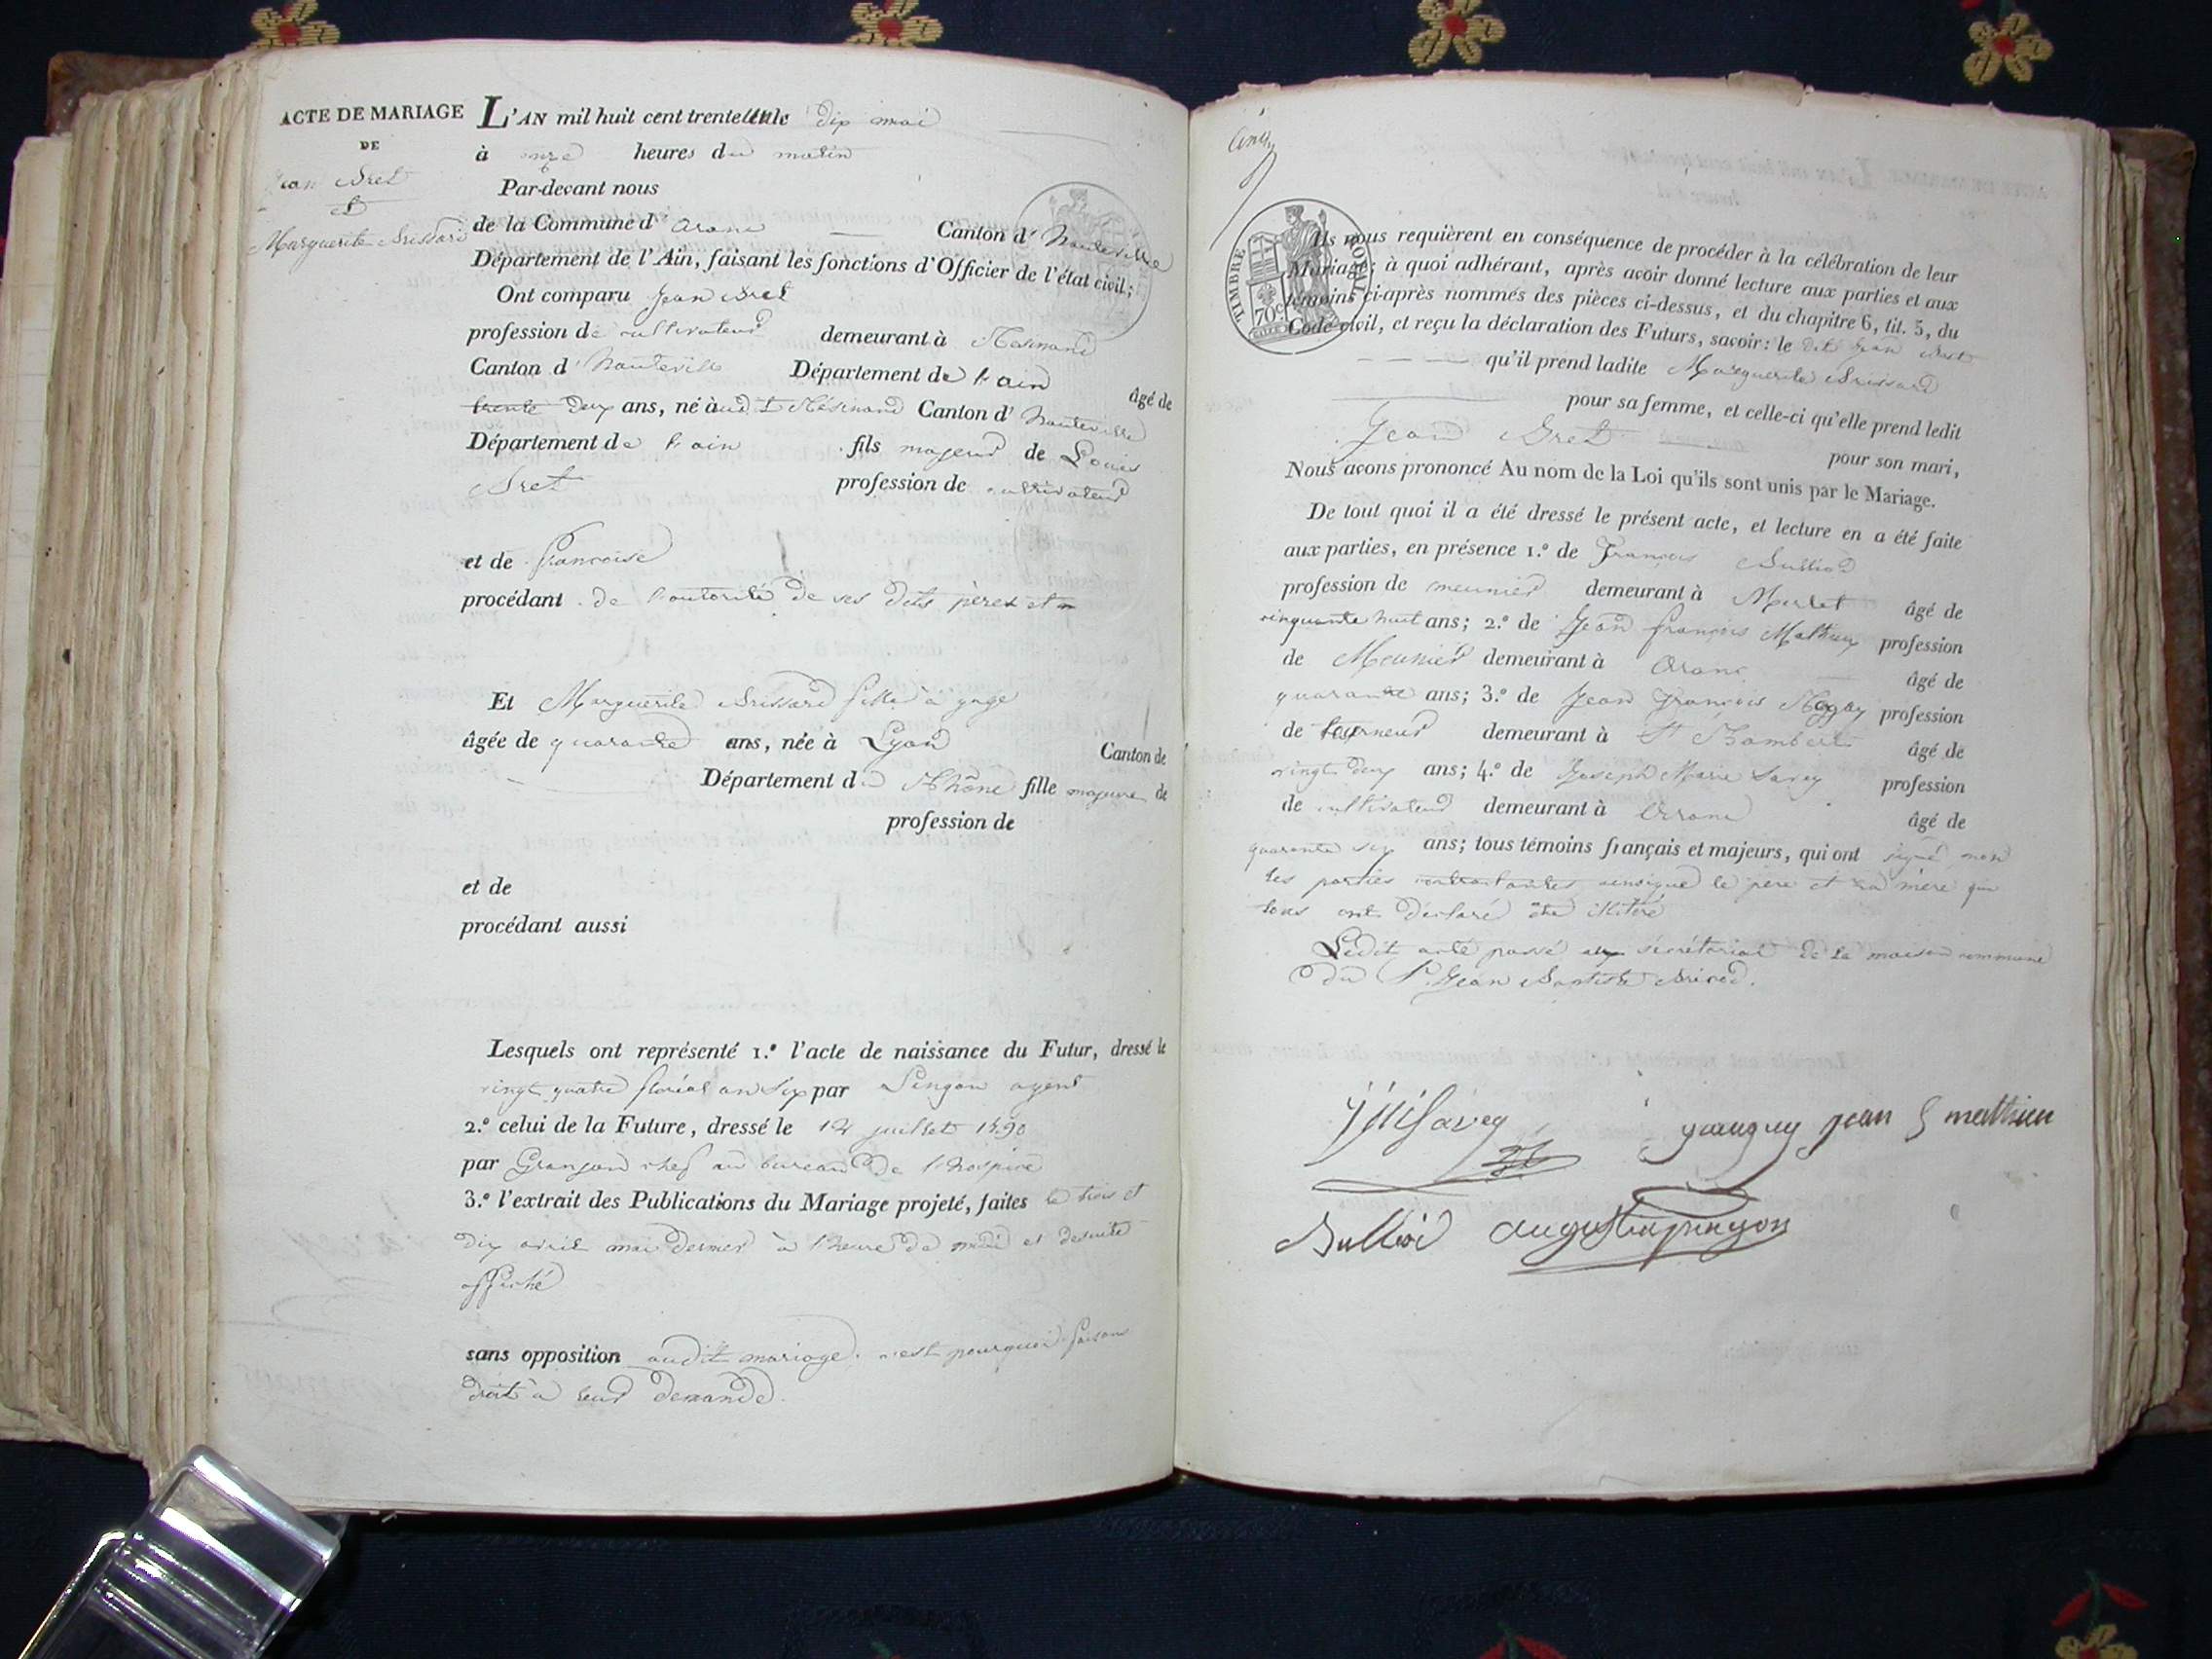 ACTE DE MARIAGE
DE
Jean Bret
et
Marguerite Brissard
L'AN mil huit cent trente un le dix mai
à onze heures du matin
Par-devant nous
de la Commune d' arane Canton d' hauteville
Département de l'Ain, faisant les fonctions d'Officier de l'état civil;
Ont comparu Jean Bret
profession de cultivateur demeurant à Résinand
Canton d' hauteville Département de l'ain âgé de
trente deux ans, né à udit Résinand Canton d' hauteville
Département de l'ain fils majeur de Louis
Bret profession de cultivateur
et de françoise
procédant de l'autorité de ses dits pères et m
Et Marguerite Brissard fille à gage
âgée de quarante ans, née à Lyon Canton de
Département du Rhône fille majeure de
profession de
et de
procédant aussi
Lesquels ont représenté 1.º l'acte de naissance du Futur, dressé le
vingt quatre floréal an six par Pingon agent
2.º celui de la Future, dressé le 12 juillet 1790
par Granjon chef au bureau de l'hospice
3.º l'extrait des Publications du Mariage projeté, faites le trois et
dix avril mai dernier à l'heure de midi et desuite
affiché
sans opposition audit mariage. c'est pourquoi faisons
droit à leur demande.
TIMBRE ROYAL
70c
Ils nous requièrent en conséquence de procéder à la célébration de leur
Mariage; à quoi adhérant, après avoir donné lecture aux parties et aux
témoins ci-après nommés des pièces ci-dessus, et du chapitre 6, tit. 5, du
Code civil, et reçu la déclaration des Futurs, savoir: le dit Jean Bret
qu'il prend ladite Marguerite Brissard
pour sa femme, et celle-ci qu'elle prend ledit
Jean Bret pour son mari,
Nous avons prononcé Au nom de la Loi qu'ils sont unis par le Mariage.
De tout quoi il a été dressé le présent acte, et lecture en a été faite
aux parties, en présence 1.º de François Bulliod
profession de meunier demeurant à Morlet âgé de
cinquante huit ans; 2.º de Jean françois Mathieu profession
de Meunier demeurant à Arane âgé de
quarante ans; 3.º de Jean François profession
de tourneur demeurant à St Rambert âgé de
vingt deux ans; 4.º de Joseph Marie Savey profession
de cultivateur demeurant à Arrane âgé de
quarante six ans; tous témoins français et majeurs, qui ont signé non
les parties contractantes le père et la mère qui
tous ont déclaré être illitéré
Ledit acte passé au secrétariat de la maison commune
du Sr Jean Baptiste
jmSavey jean f mathieu
Bulliod augustin pingon